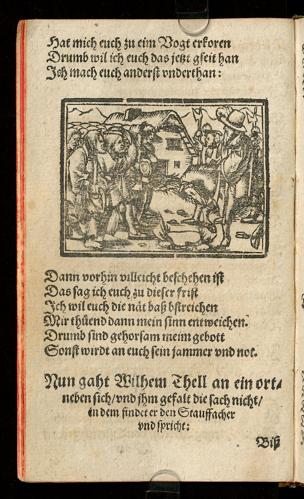 Hat mich euch zu eim Vogt erkoren
Drumb wil ich euch das jetzt gseit han
Ich mach euch anderst vnderthan:
Dann vorhin villeicht beschehen ist
Das sag ich euch zu dieser frist
Ich wil euch die nät baß bstreichen
Mir thüend dann mein sinn entweichen.
Drumb sind gehorsam meim gebott
Sonst wirdt an euch sein jammer vnd not.
Nun gaht Wilhelm Thell an ein ort/
neben sich/vnd jhm gefalt die sach nicht/
in dem findet er den Stauffacher
vnd spricht:
Biß